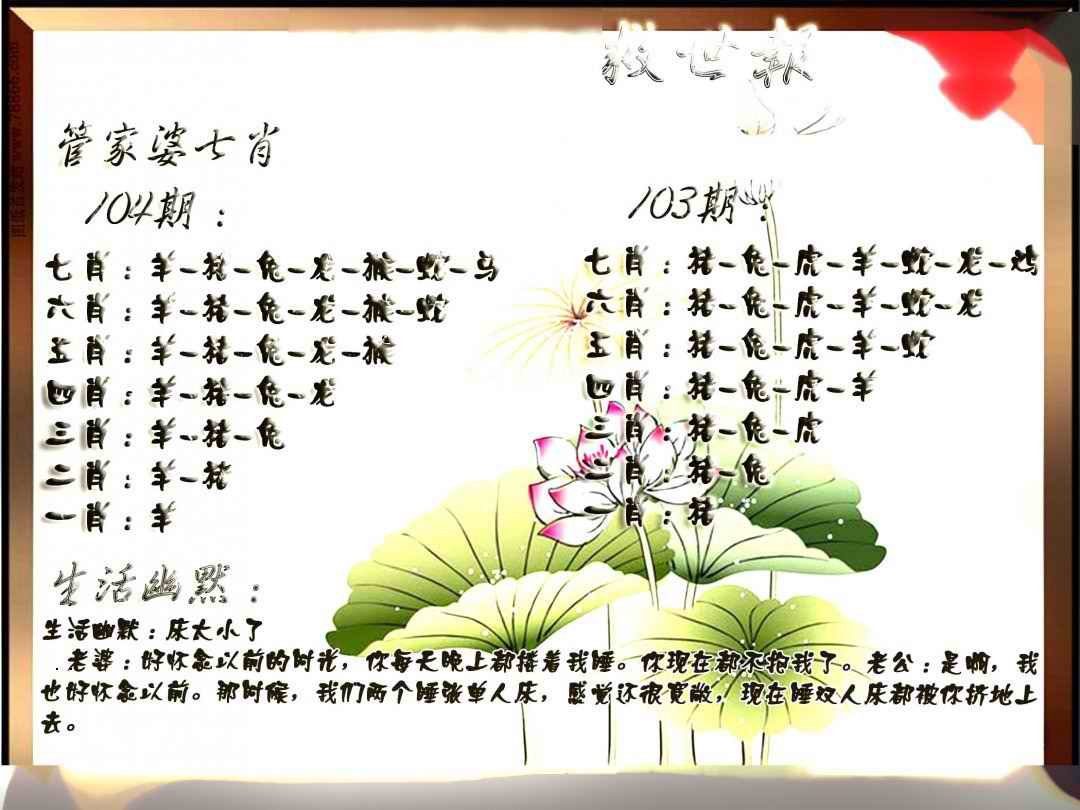 救世報
管家婆七肖
104期：
七肖：羊-猪-兔-龙-猴-蛇-马
六肖：羊-猪-兔-龙-猴-蛇
五肖：羊-猪-兔-龙-猴
四肖：羊-猪-兔-龙
三肖：羊-猪-兔
二肖：羊-猪
一肖：羊
103期：
七肖：猪-兔-虎-羊-蛇-龙-鸡
六肖：猪-兔-虎-羊-蛇-龙
五肖：猪-兔-虎-羊-蛇
四肖：猪-兔-虎-羊
三肖：猪-兔-虎
二肖：猪-兔
一肖：猪
生活幽默：
生活幽默：床太小了
．老婆：好怀念以前的时光，你每天晚上都搂着我睡。你现在都不抱我了。老公：是啊，我
也好怀念以前。那时候，我们两个睡张单人床，感觉还很宽敞，现在睡双人床都被你挤地上
去。